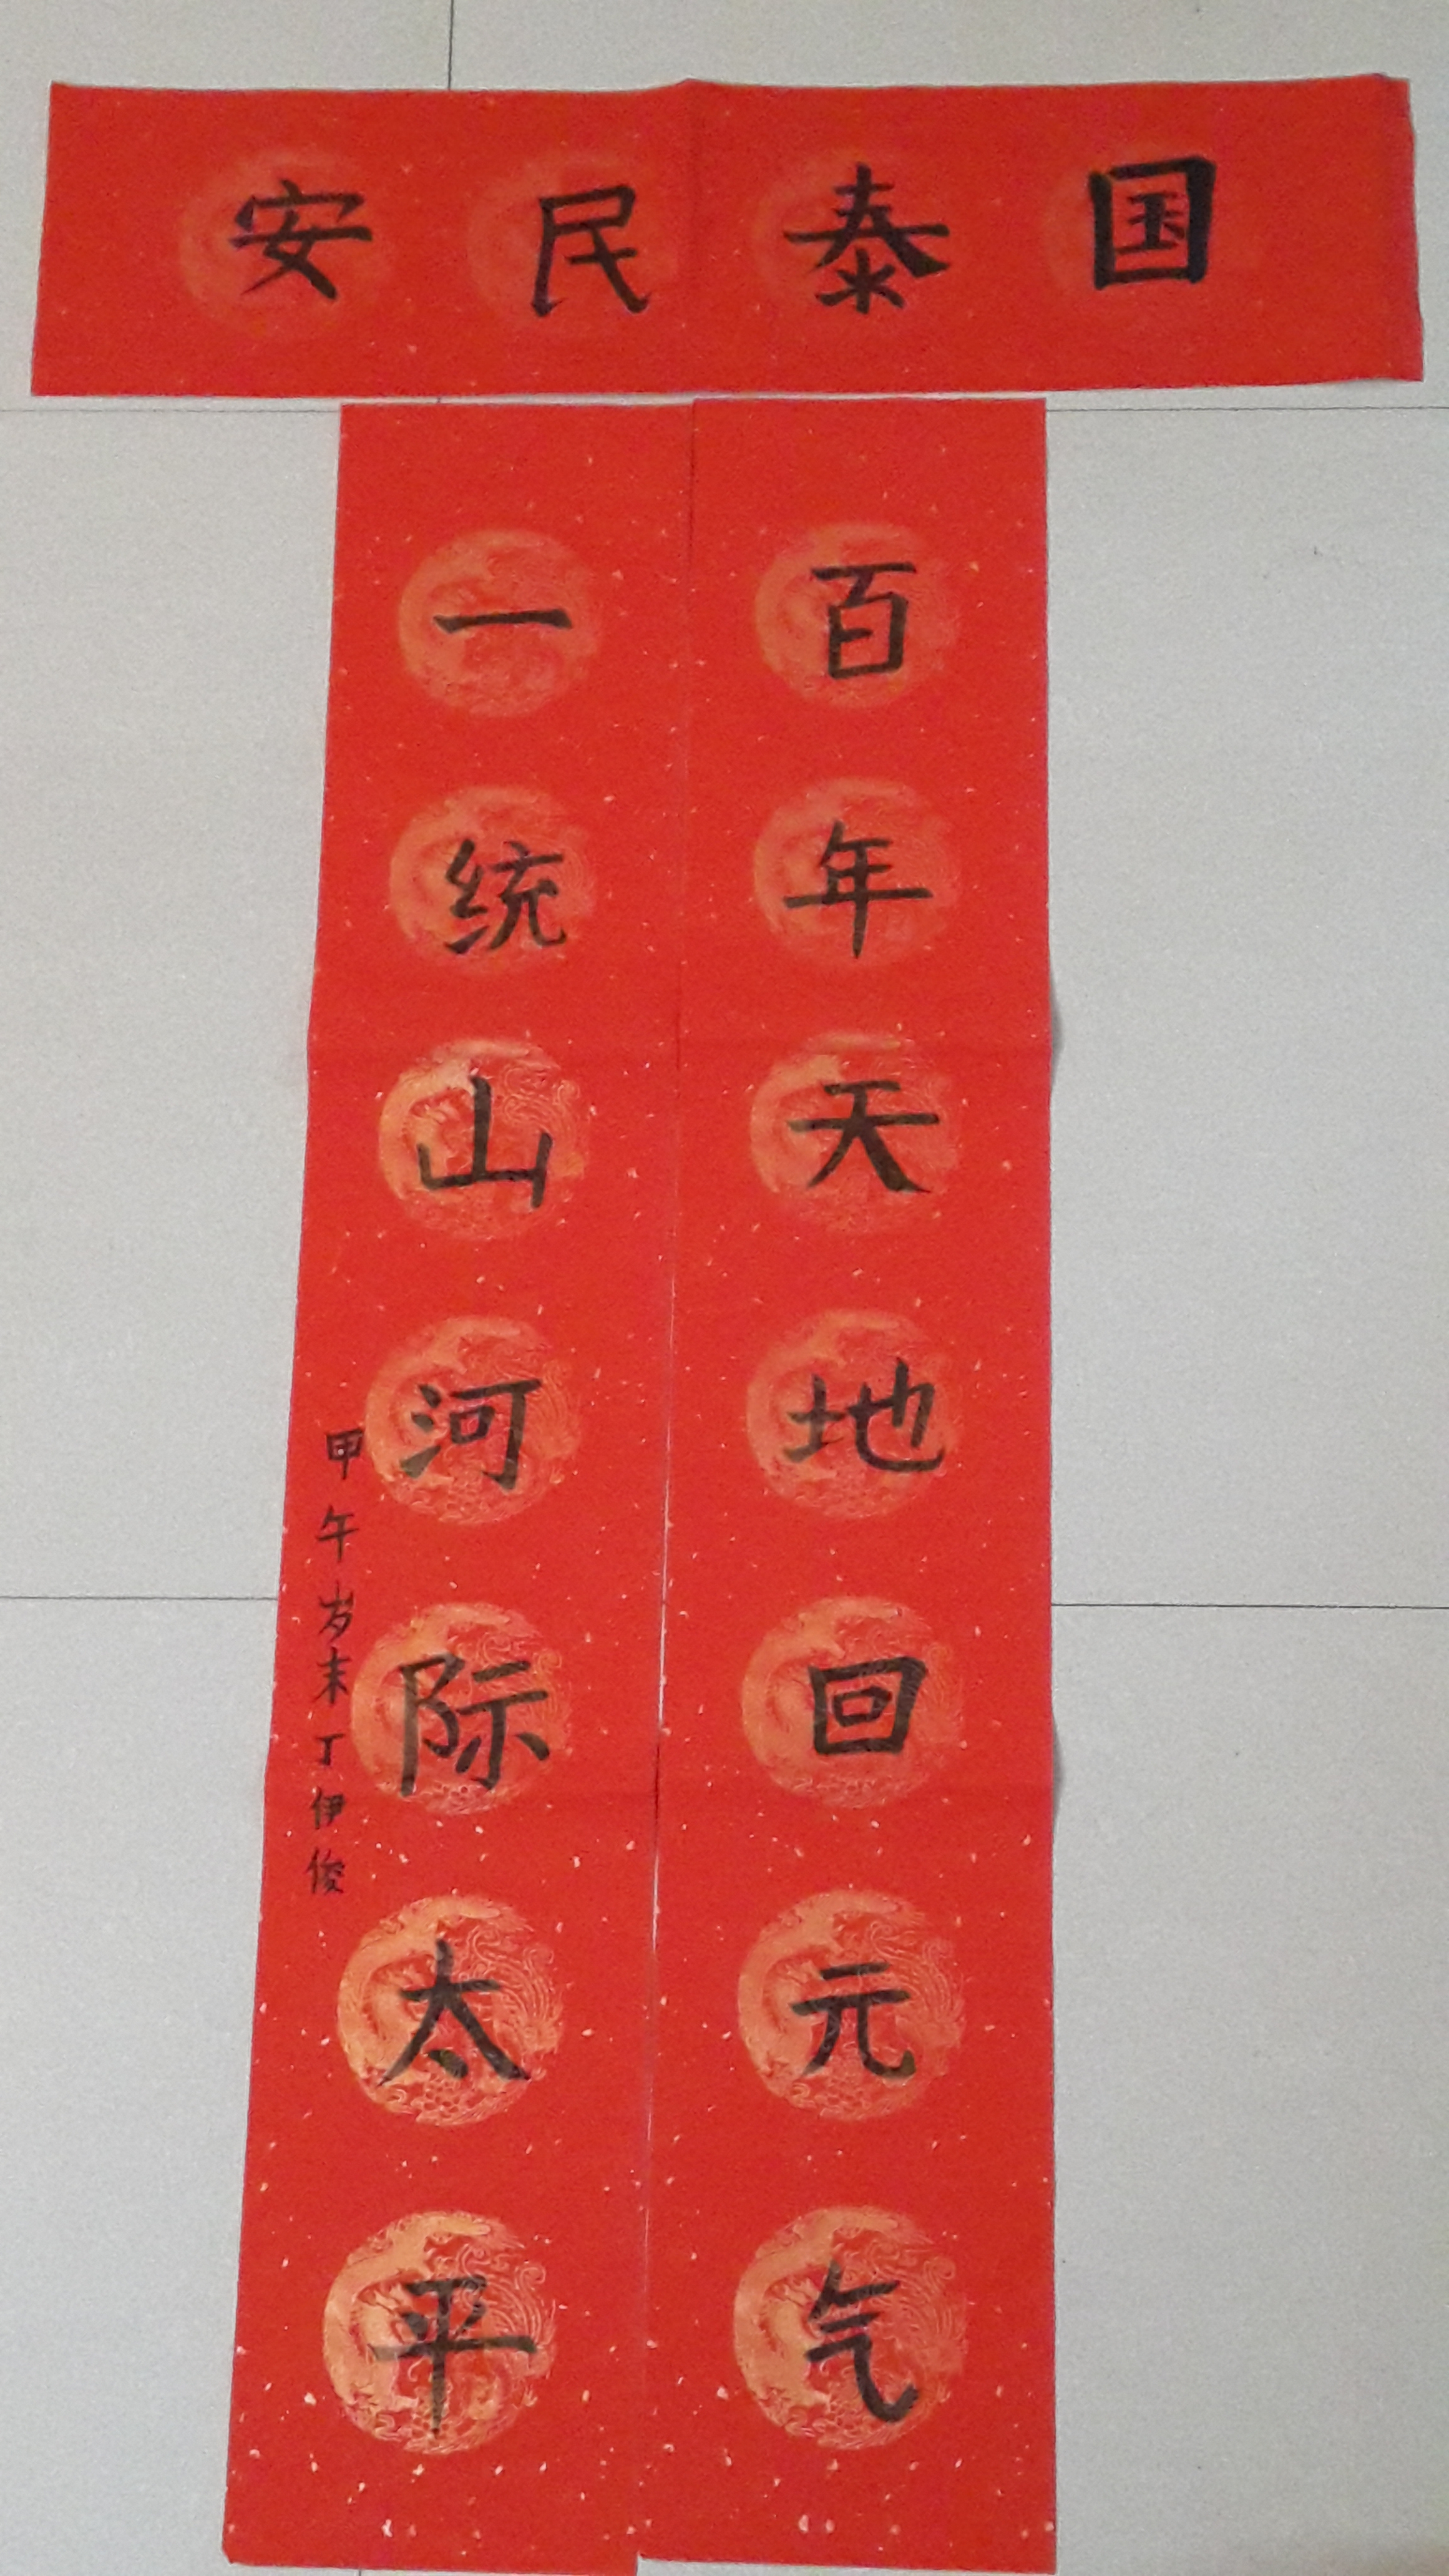 国泰民安
百年天地回元气
一统山河际太平
甲午岁末丁伊俊